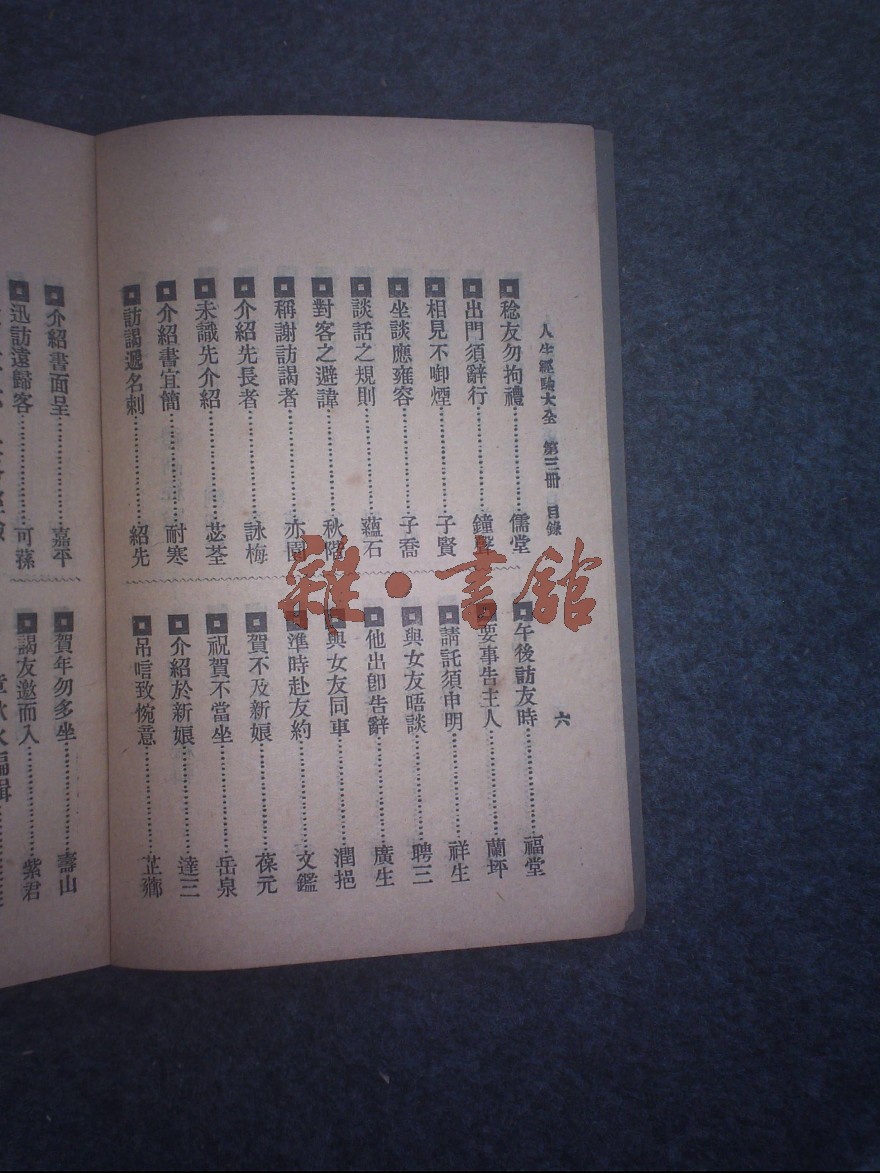 人生經驗大全 第三冊 目錄 六
稔友勿拘禮⋯⋯儒堂
出門須辭行⋯⋯鐘聲
相見不啣煙⋯⋯子賢
坐談應雍容⋯⋯子喬
談話之規則⋯⋯蘊石
對客之避諱⋯⋯秋階
稱謝訪謁者⋯⋯亦園
介紹先長者⋯⋯詠梅
未識先介紹⋯⋯苾荃
介紹書宜簡⋯⋯耐寒
訪謁遞名刺⋯⋯紹先
午後訪友時⋯⋯福堂
要事告主人⋯⋯蘭坪
請託須申明⋯⋯祥生
與女友晤談⋯⋯聘三
他出卽告辭⋯⋯廣生
與女友同車⋯⋯潤挹
準時赴友約⋯⋯文鑑
賀不及新娘⋯⋯葆元
祝賀不當坐⋯⋯岳泉
介紹於新娘⋯⋯達三
吊唁致惋意⋯⋯芷薌
介紹書面呈⋯⋯嘉平
迅訪遠歸客⋯⋯可蓀
賀年勿多坐⋯⋯壽山
謁友邀而入⋯⋯紫君
雜·書館